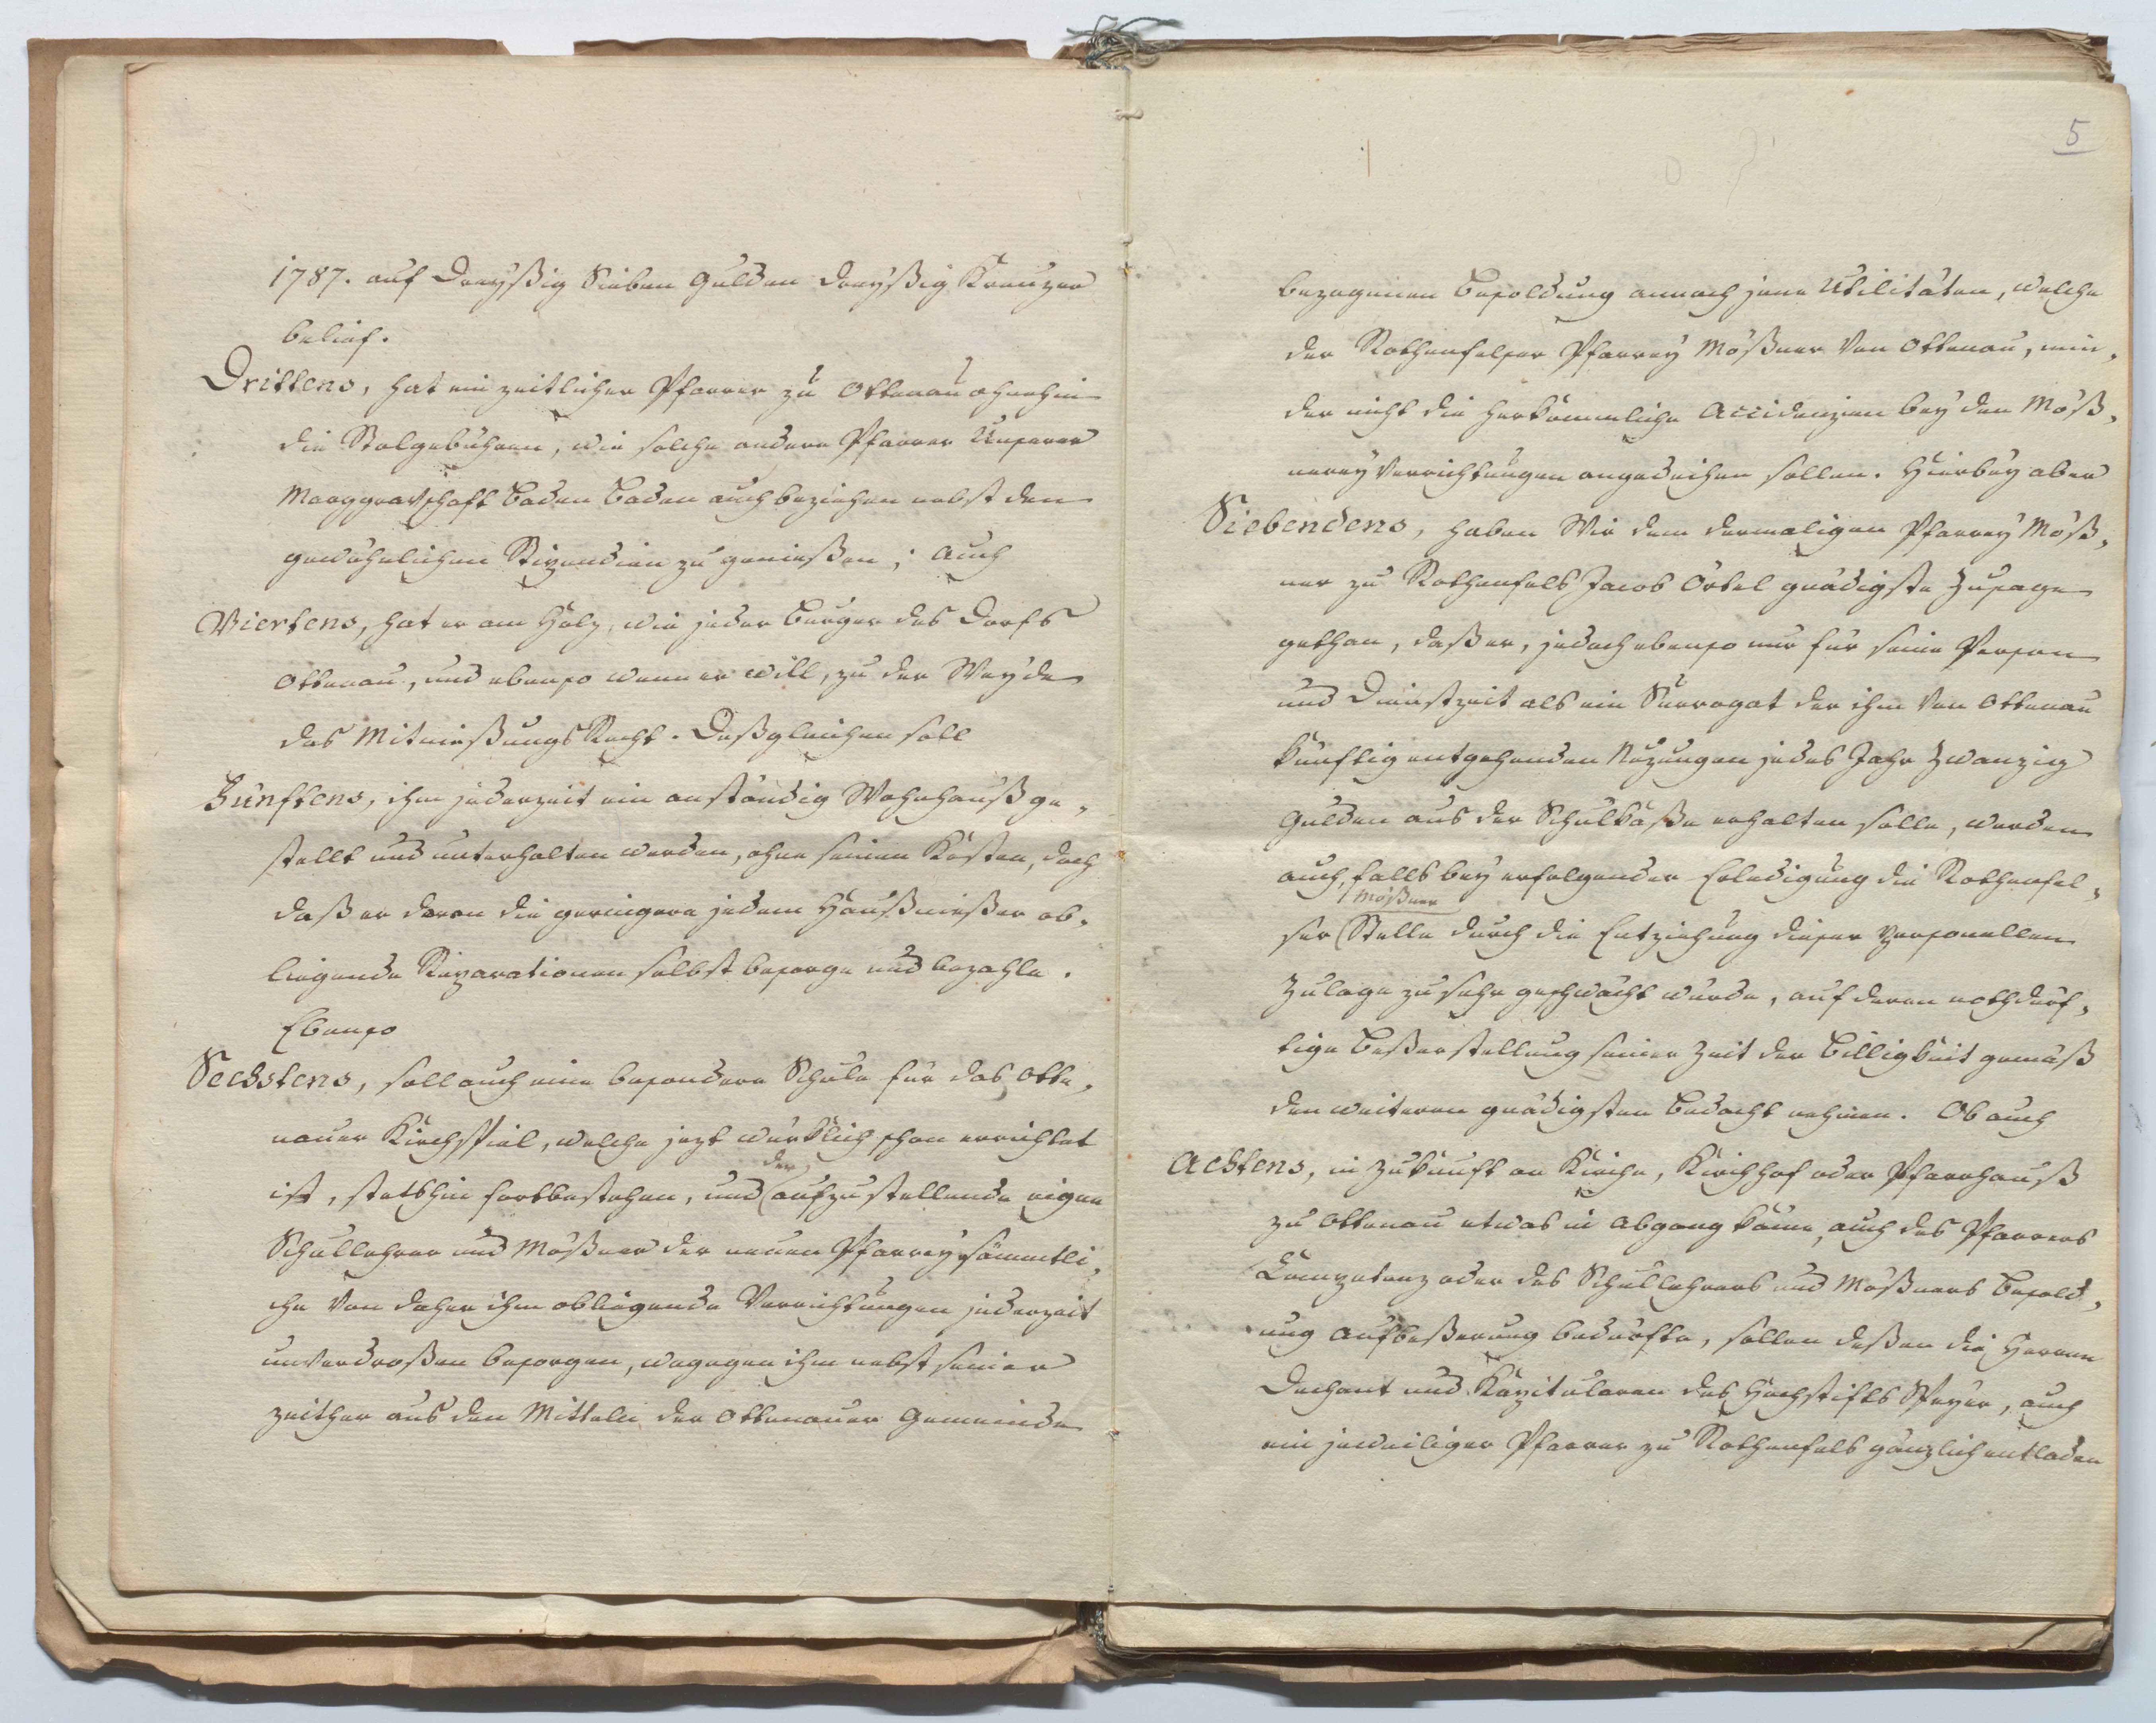 1787. auf Dreyßig Sieben Gulden dreyßig Kreuzer
belief.
Drittens, hat ein zeitlicher Pfarrer zu Ottenau ohnehin
die Stolgebühren, wie solche andere Pfarrer Unserer
Marggravschaft Baden Baden auch beziehen nebst den
gewöhnlichen Stipendien zu genießen; auch
Viertens, hat er am Holz, wie jeder Burger des Dorfs
Ottenau, und ebenso wenn er will, zu der Weyde
das MitniesungsRecht. Desgleichen soll
Fünftens, ihm jederzeit ein anständig Wohnhauß ge„
stellt und unterhalten werden, ohne seinen Kosten, doch
daß er daran die geringere jedem Haußnießer ob„
liegende Reparationen selbst besorge und bezahle.
Ebenso
Sechstens, soll auch eine besondere Schule für das Otte„
nauer Kirchspiel, welche jezt würklich schon errichtet
ist, stetshin fortbestehen, und der aufzustellende eigne
Schullehrer und Mößner der neuen Pfarrey sämmtli„
che von daher ihm obliegende Verrichtungen jederzeit
unverdroßen besorgen, wogegen ihm nebst seiner
zeither aus den Mitteln der Ottenauer Gemeinde
5
bezogenen Besoldung annoch jene Utilitäten, welche
der Rothenfelser Pfarrey Mößner von Ottenau, min„
der nicht die herkömmliche Accidenzien bey den Möß„
nerey Verrichtungen angedeihen sollen. Hierbey aber
Siebendens, haben Wir dem dermaligen Pfarrey Möß„
ner zu Rothenfels Jacob Örtel gnädigste Zusage
gethan, daß er, jedoch ebenso nur für seine Person
und Dienstzeit als ein Surrogat der ihm von Ottenau
künftig entgehenden Nuzungen jedes Jahr Zwanzig
Gulden aus der Schulkaße erhalten solle, werden
auch, falls bey erfolgender Erledigung die Rothenfel„
ser Mößner Stelle durch die Entziehung dieser personellen
Zulage zu sehr geschwächt würde, auf deren nothdürf„
tige Beßerstellung seiner Zeit der Billigkeit gemäß
den weiteren gnädigsten Bedacht nehmen. Ob auch
Achtens, in Zukunft an Kirche, Kirchhof oder Pfarrhauß
zu Ottenau etwas in Abgang käme, auch des Pfarrers
Competenz oder des Schullehrers und Mößners Besold„
ung Aufbeßerung bedürfte, sollen deßen die Herren
Dechant und Kapitularen des Hochstifts Speyer, auch
ein jeweiliger Pfarrer zu Rothenfels gänzlich entladen